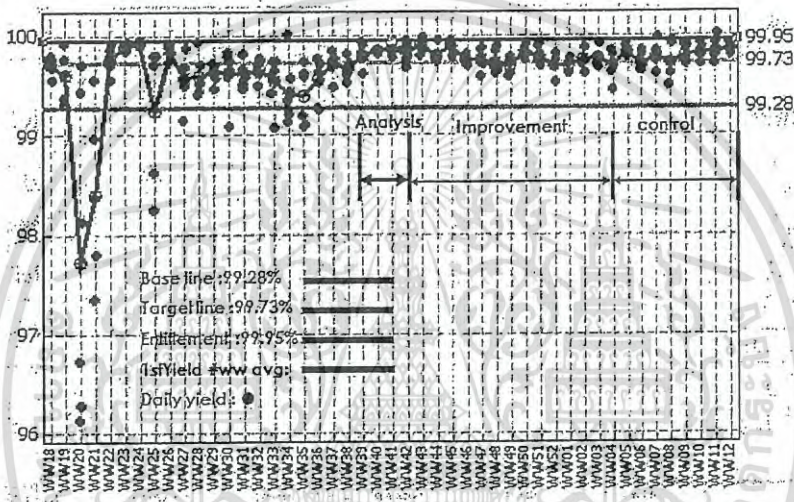 100
99
98
97
96
99.95
99.73
99.28
Analysis Improvement control
Base line :99.28%
Target line :99.73%
Entitlement :99.95%
1stYield #ww avg:
Daily yield :
WW18 WW19 WW20 WW21 WW22 WW23 WW24 WW25 WW26 WW27 WW28 WW29 WW30 WW31 WW32 WW33 WW34 WW35 WW36 WW37 WW38 WW39 WW40 WW41 WW42 WW43 WW44 WW45 WW46 WW47 WW48 WW49 WW50 WW51 WW52 WW01 WW02 WW03 WW04 WW05 WW06 WW07 WW08 WW09 WW10 WW11 WW12